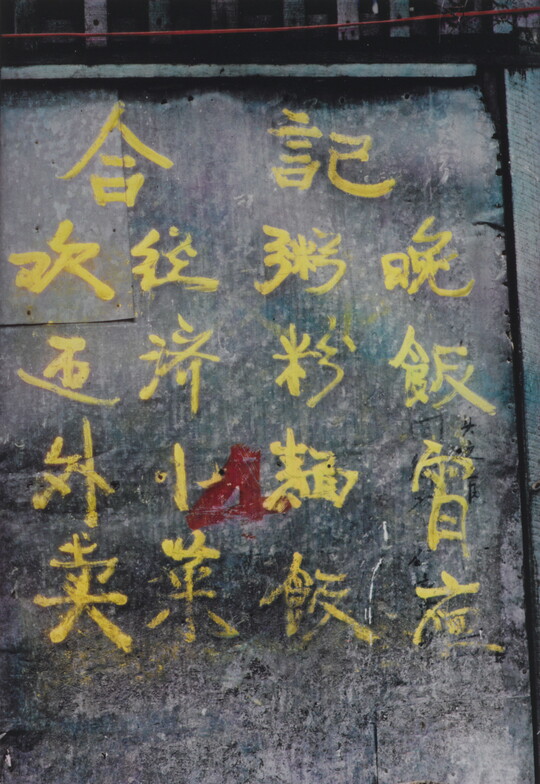 合記
晚飯宵夜
粥粉麵飯
经济小菜
欢迎外卖